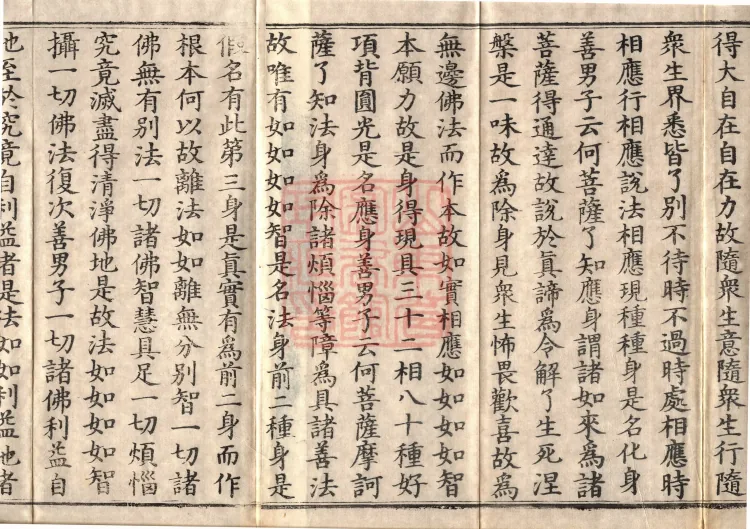 得大自在自在力故隨衆生意隨衆生行隨
衆生界悉皆了別不待時不過時處相應時
相應行相應說法相應現種種身是名化身
善男子云何菩薩了知應身謂諸如來爲諸
菩薩得通達故說於真諦爲令解了生死涅
槃是一味故爲除身見衆生怖畏歡喜故爲
無邊佛法而作本故如實相應如如如如智
本願力故是身得現具三十二相八十種好
項背圓光是名應身善男子云何菩薩摩訶
薩了知法身爲除諸煩惱等障爲具諸善法
故唯有如如如如智是名法身前二種身是
假名有此第三身是真實有爲前二身而作
根本何以故離法如如離無分別智一切諸
佛無有別法一切諸佛智慧具足一切煩惱
究竟滅盡得清淨佛地是故法如如如如智
攝一切佛法復次善男子一切諸佛利益自
他至於究竟自利益者是法如如利益他者